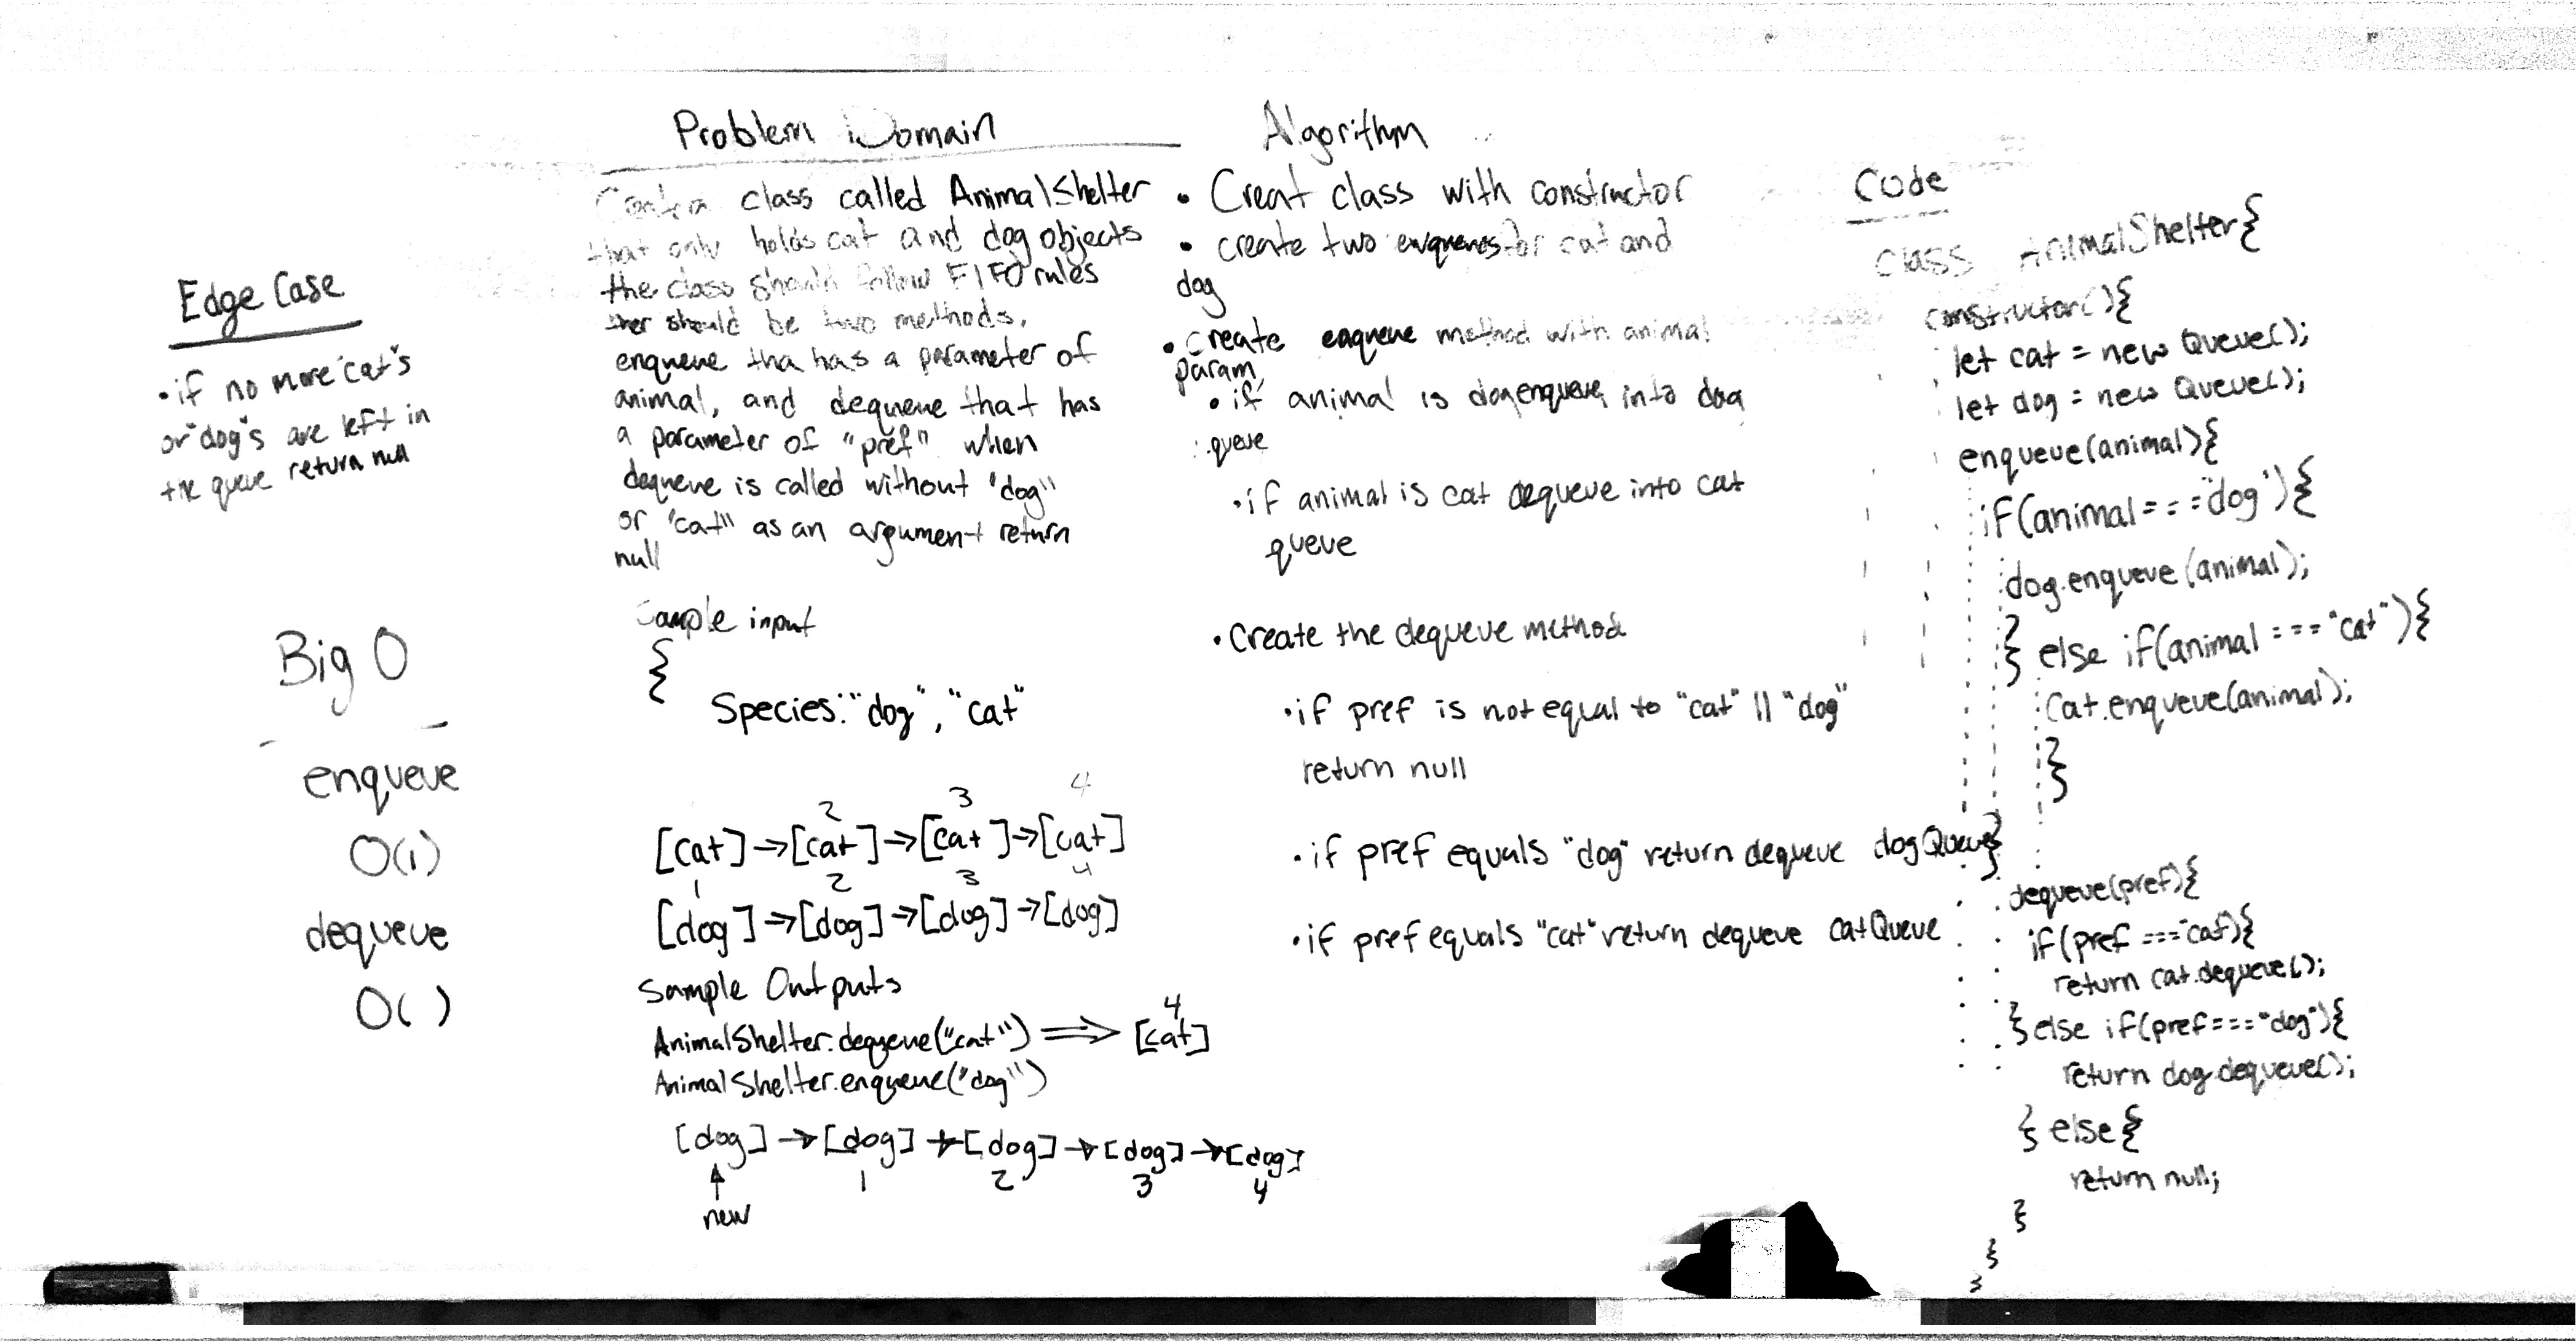 Edge Case
• if no more "cat"s
or "dog"s are left in
the queue return null
Big O
enqueue
O(1)
dequeue
O( )
Problem Domain
Create a class called AnimalShelter
that only holds cat and dog objects
the class should follow FIFO rules
ther should be two methods,
enqueue tha has a parameter of
animal, and dequeue that has
a parameter of "pref" when
dequeue is called without "dog"
or "cat" as an argument return
null
Sample input
{
Species: "dog", "cat"
2 3 4
[cat] → [cat] → [cat] → [cat]
1 2 3 4
[dog] → [dog] → [dog] → [dog]
Sample Outputs
4
AnimalShelter.dequeue("cat") ⟹ [cat]
AnimalShelter.enqueue("dog")
[dog] → [dog] → [dog] → [dog] → [dog]
↑ 1 2 3 4
new
Algorithm
• Creat class with constructor
• create two for cat and
dog
• create enqueue method with animal
param,
• if animal is dog enqueue into dog
queue
• if animal is cat dequeue into cat
queue
• Create the dequeue method
• if pref is not equal to "cat" || "dog"
return null
• if pref equals "dog" return dequeue dogQueue
• if pref equals "cat" return dequeue catQueue
Code
class AnimalShelter{
constructor(){
let cat = new Queue();
let dog = new Queue();
enqueue(animal){
if(animal==="dog"){
dog.enqueue(animal);
} else if(animal === "cat"){
Cat.enqueue(animal);
}
}
dequeue(pref){
if(pref ==="cat){
return cat.dequeue();
} else if(pref==="dog"){
return dog.dequeue();
} else {
return null;
}
}
}